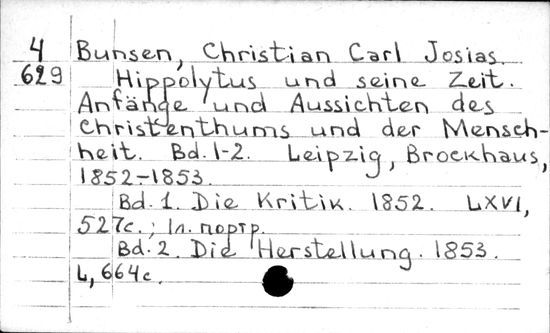 4 Bunsen, Christian Carl Josias.
629 Hippolytus und seine Zeit.
Anfänge und Aussichten des
Christenthums und der Mensch-
heit. Bd. 1-2. Leipzig, Brockhaus,
1852-1853.
Bd. 1. Die Kritik. 1852. LXVI,
527с.; 1л. портр.
Bd. 2. Die Herstellung. 1853.
L, 664с.